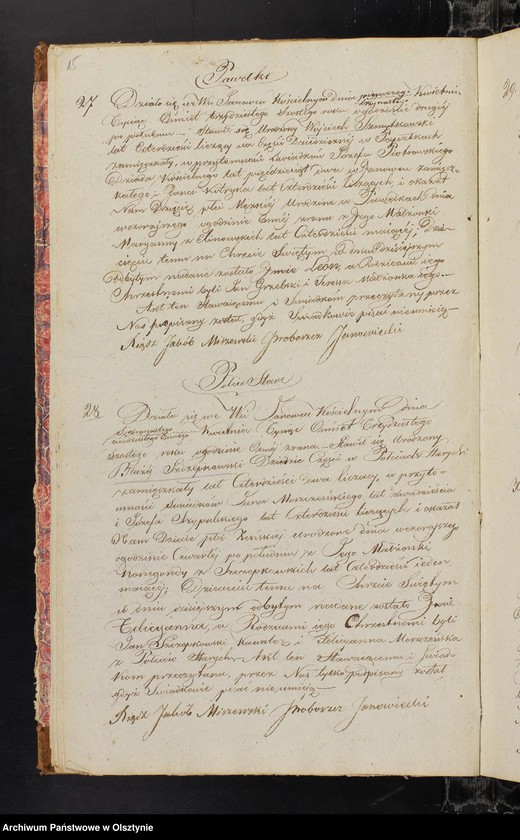 15
Pawełki
27 Działo się we Wsi Janowcu Kościelnym dnia pierwszego Kwietnia
Tysiąc Ośmset Trzydziestego Szóstego roku o godzinie drugiej
po południu – Stawił się Urodzony Wojciech
lat Czterdzieści liczący na Części Dziedzicznej w Pawełkach
zamieszkały, w przytomności Świadków Józefa Piotrowskiego
Dziada Kościelnego lat pięćdziesiąt dwa w Janowcu zamiesz-
kałego, i Jana lat Czterdzieści liczących, i okazał
Nam Dziecię płci Męzkiej Urodzone w Pawełkach dnia
wczorajszego o godzinie ósmej zrana z Jego Małżonki
Maryanny z lat Czterdzieści mającej, Dzie-
cięciu temu na Chrzcie Świętym w dniu dzisiejszym
odbytym nadane zostało Imie Leon, a Rodzicami jego
Chrzestnemi byli Jan Grzebski i Teressa Małżonka Jego –
Akt ten Stawającemu i Świadkom przeczytany przez
Nas podpisany został, gdyż Świadkowie pisać nieumieją –
Xiądz Jakób Miszewski Proboszcz Janowiecki
Połcie Stare
28 Działo się we Wsi Janowcu Kościelnym dnia
Kwietnia Tysiąc Ośmset Trzydziestego
szóstego roku o godzinie ósmej zrana – Stawił się Urodzony
Błażej Szczepkowski Dziedzic Części w Połciach Starych
zamieszkały lat Czterdzieści dwa liczący, w przyto-
mności Świadków Jana lat dwadzieścia
i Józefa lat Czterdzieści liczących i okazał
Nam Dziecie płci Żeńskiej urodzone dnia wczorajszego
o godzinie Czwartej po południu z Jego Małżonki
Konegundy z Szczepkowskich lat Czterdzieści jeden
mającej; Dziecięciu temu na Chrzcie Świętym
w dniu dzisiejszym odbytym nadane zostało Imie
Felicyanna, a Rodzicami jego Chrzestnemi byli
Jan Szczepkowski Kawaler i Felicyanna
z Połciów Starych – Akt ten Stawającemu i Świad-
kom przeczytany, przez Nas tylko podpisany został
gdyż Świadkowie pisać nieumieją –
Xiądz Jakób Miszewski Proboszcz Janowiecki
Archiwum Państwowe w Olsztynie